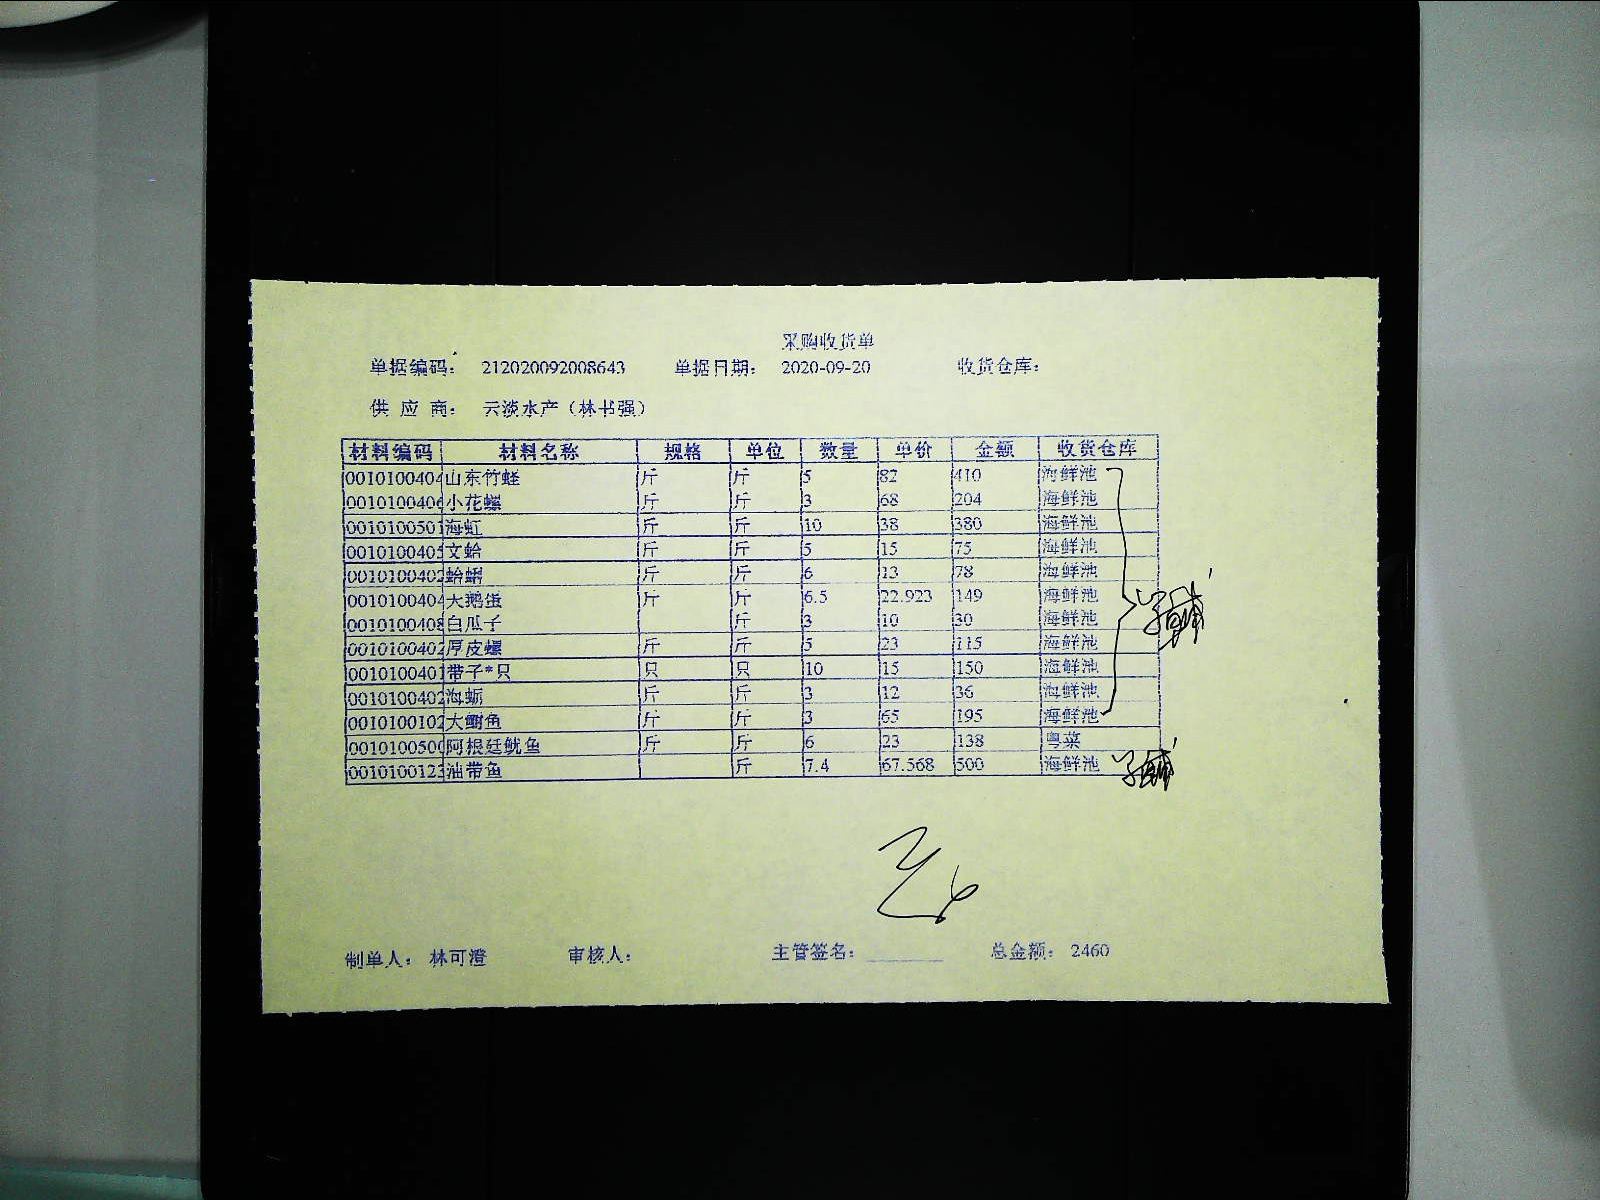 采购收货单
单据编码： 212020092008643 单据日期： 2020-09-20 收货仓库：
供 应 商： 云淡水产（林书强）
材料编码 材料名称 规格 单位 数量 单价 金额 收货仓库
0010100404 山东竹蛏 斤 斤 5 82 410 海鲜池
0010100406 小花螺 斤 斤 3 68 204 海鲜池
0010100501 海虹 斤 斤 10 38 380 海鲜池
0010100405 文蛤 斤 斤 5 15 75 海鲜池
0010100402 蛤蜊 斤 斤 6 13 78 海鲜池
0010100404 大鹅蛋 斤 斤 6.5 22.923 149 海鲜池
0010100408 白瓜子 斤 3 10 30 海鲜池
0010100402 厚皮螺 斤 斤 5 23 115 海鲜池
0010100401 带子*只 只 只 10 15 150 海鲜池
0010100402 海蛎 斤 斤 3 12 36 海鲜池
0010100102 大鲥鱼 斤 斤 3 65 195 海鲜池
0010100500 阿根廷鱿鱼 斤 斤 6 23 138 粤菜
0010100123 油带鱼 斤 7.4 67.568 500 海鲜池
制单人： 林可澄 审核人： 主管签名： 总金额： 2460